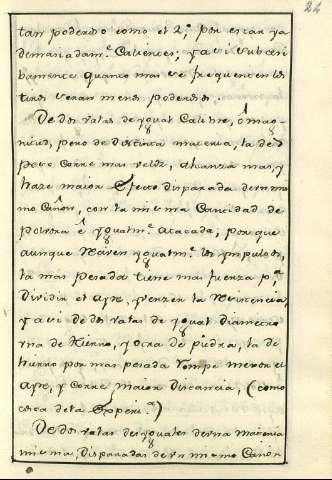 22
tan poderoso como el 2º por estar ya
demasiadamte Calientes; y assi subceci
bamente quanto mas se frequenten los
tiros seran menos poderosos.
De dos valas de ygual Calibre, ô mag-
nitud, pero de distinta materia, la de +
peso Corre mas veloz, alcanza mas, y
haze maior Efecto disparada de un mis
mo Cañon, con la misma Cantidad de
polvora ê ygualmte atacada, porque
aunque reciven ygualmte los ympulsos,
la mas pesada tiene mas fuerza pª
dividir el Ayre, y venzer la Resistencia
y assi de dos valas de ygual diametro
una de Hierro, y otra de piedra, la de
hierro por mas pesada rompe menos el
Ayre, y Corre maior Distancia, (como
consta de la Experiª)
De dos valas de yguales de una materia
misma, disparadas de un mismo Cañon